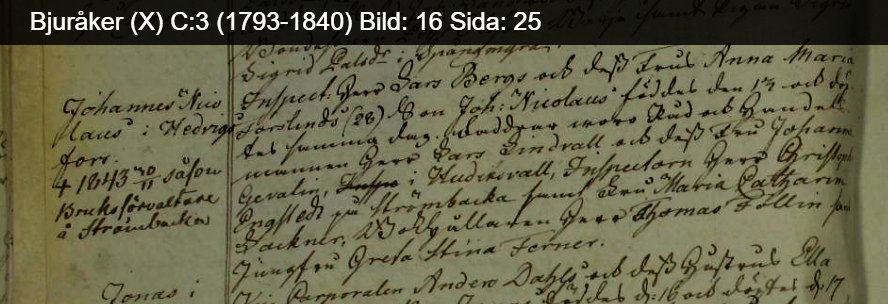 Bjuråker (X) C:3 (1793-1840) Bild: 16 Sida: 25
Sigrid Palsdr i
Johannes Nico
laus i Hedvigs
fors.
† 1843 30/11 såsom
Bruksförvaltare
å Strömbacka
Inspect: Herr Lars Bergs och dess Frus Anna Maria
Forslinds (28) Son Joh: Nicolaus föddes den och döp-
tes samma dag. Faddrar woro Råd och Handels
mannen Herr Lars Lindvall och dess Fru Johanna
Gevalin, i Hudikswall, Inspectorn Herr Christoph
Engstedt på Strömbacka samt Fru Maria Catharina
Fackner, Bokhållaren Herr Thomas Föllin samt
Jungfru Greta Stina Ferner.
Jonas i
Corporalen Anders Dahls och dess Hustrus Ella
föddes d: 16 och döptes d: 17